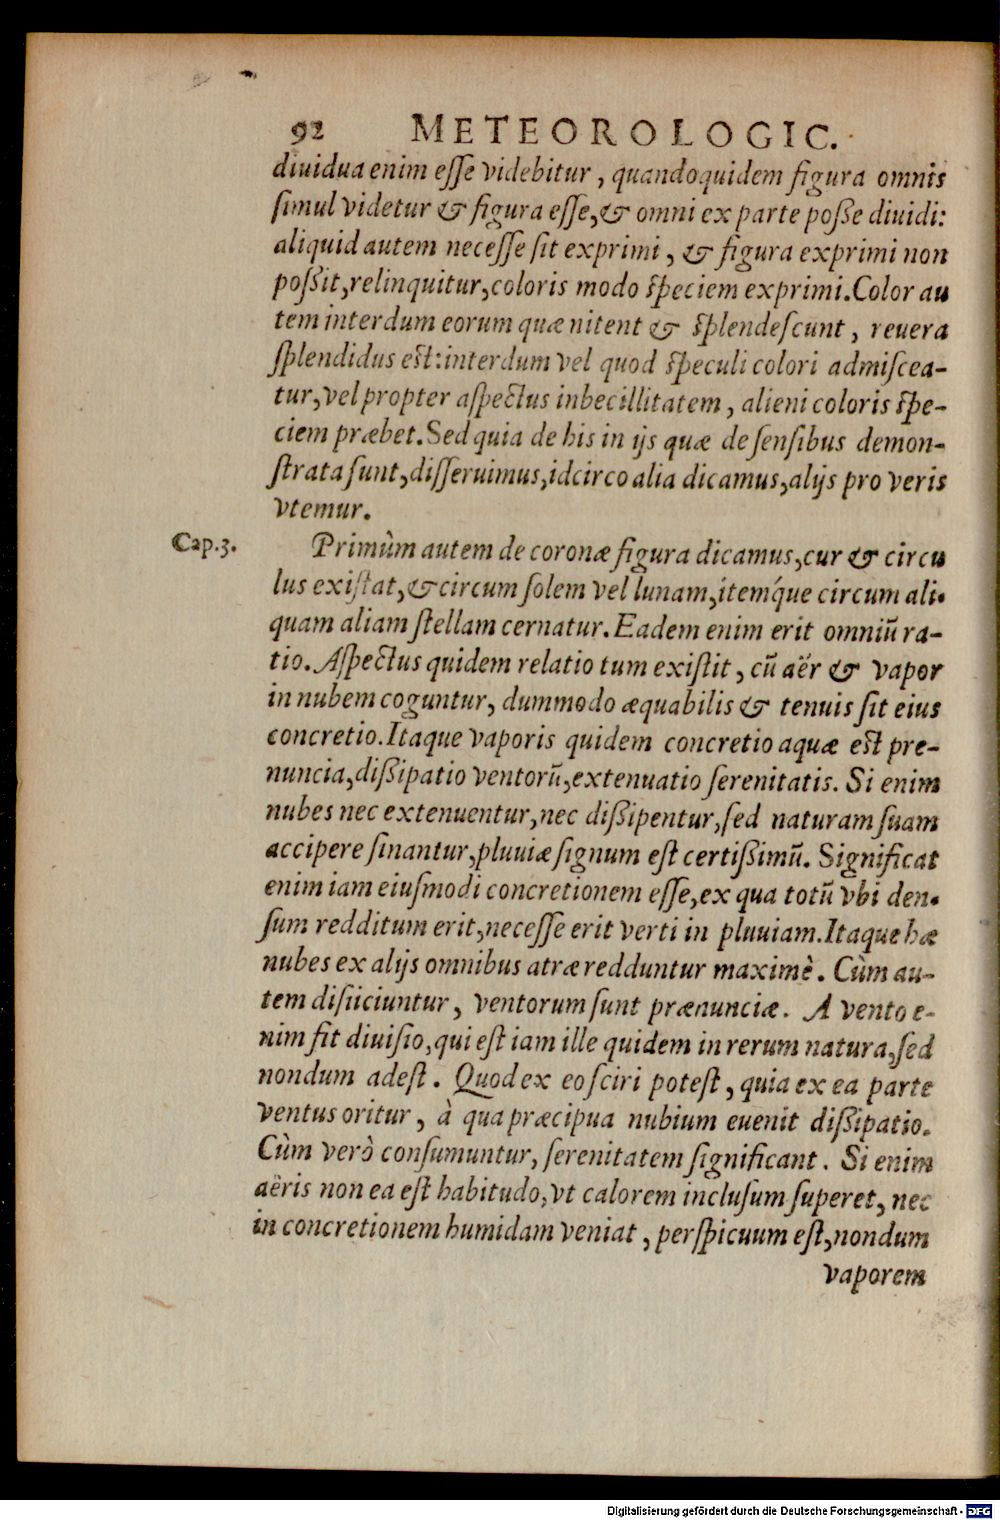 92 METEOROLOGIC.
diuidua enim eſſe videbitur, quandoquidem figura omnis
ſimul videtur & figura eſſe, & omni ex parte poſſe diuidi:
aliquid autem neceſſe ſit exprimi, & figura exprimi non
poſſit, relinquitur, coloris modo ſpeciem exprimi. Color au
tem interdum eorum quæ nitent & ſplendeſcunt, reuera
ſplendidus eſt: interdum vel quod ſpeculi colori admiſcea-
tur, vel propter aſpectus inbecillitatem, alieni coloris ſpe-
ciem præbet. Sed quia de his in ijs quæ de ſenſibus demon-
ſtrata ſunt, diſſeruimus, idcirco alia dicamus, alijs pro veris
vtemur.
Cap.3. Primùm autem de coronæ figura dicamus, cur & circu
lus exiſtat, & circum ſolem vel lunam, itemq́ue circum ali-
quam aliam ſtellam cernatur. Eadem enim erit omniū ra-
tio. Aſpectus quidem relatio tum exiſtit, cū aër & vapor
in nubem coguntur, dummodo æquabilis & tenuis ſit eius
concretio. Itaque vaporis quidem concretio aquæ eſt pre-
nuncia, diſſipatio ventorū, extenuatio ſerenitatis. Si enim
nubes nec extenuentur, nec diſſipentur, ſed naturam ſuam
accipere ſinantur, pluuiæ ſignum eſt certiſſimū. Significat
enim iam eiuſmodi concretionem eſſe, ex qua totū vbi den-
ſum redditum erit, neceſſe erit verti in pluuiam. Itaque hæ
nubes ex alijs omnibus atræ redduntur maximè. Cùm au-
tem diſiiciuntur, ventorum ſunt prænunciæ. A vento e-
nim fit diuiſio, qui eſt iam ille quidem in rerum natura, ſed
nondum adeſt. Quod ex eo ſciri poteſt, quia ex ea parte
ventus oritur, à qua præcipua nubium euenit diſſipatio.
Cùm verò conſumuntur, ſerenitatem ſignificant. Si enim
aëris non ea eſt habitudo, vt calorem incluſum ſuperet, nec
in concretionem humidam veniat, perſpicuum eſt, nondum
vaporem
Digitalisierung gefördert durch die Deutsche Forschungsgemeinschaft - DFG